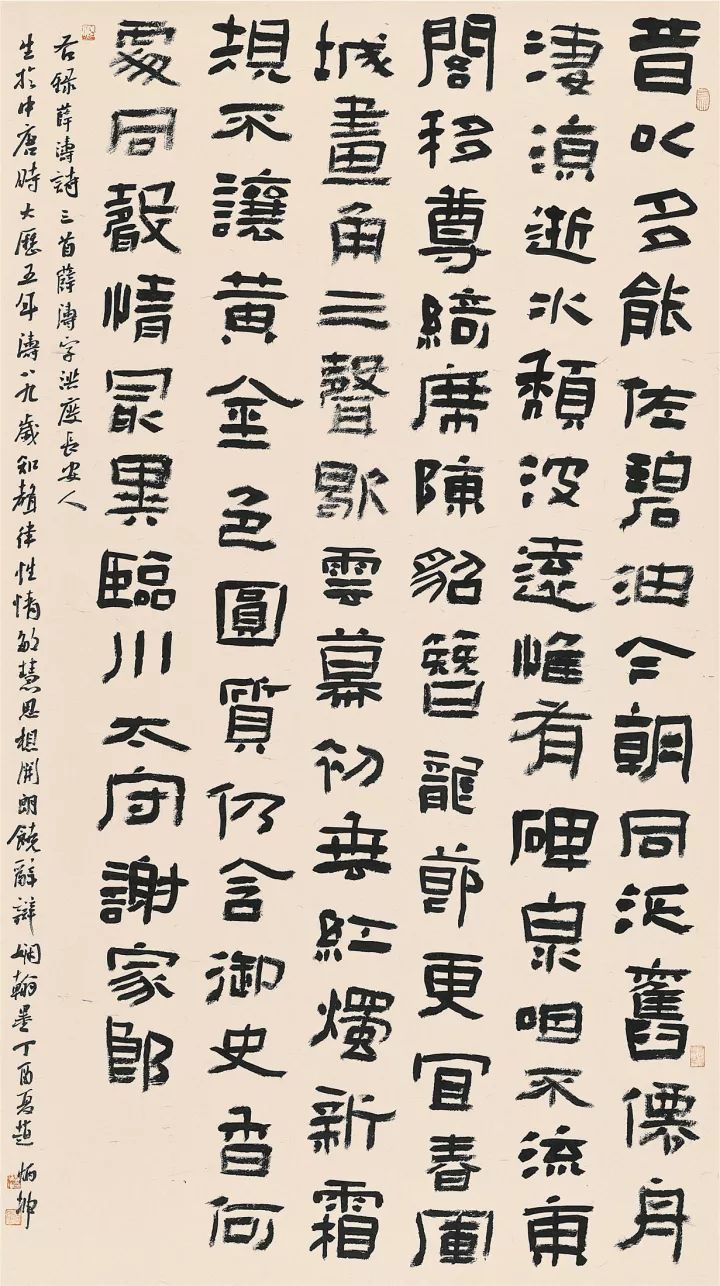 昔以多能佐碧油今朝同泛舊僊舟
淒涼逝水頹波遠惟有碑泉咽不流東
閣移尊綺席陳貂簪龍節更宜春軍
城畫角三聲歇雲幕初垂紅燭新霜
規不讓黃金色圓質仍含御史香何
處同聲情最異臨川太守謝家郎
右錄薛濤詩三首薛濤字洪度長安人
生於中唐時大歷五年濤八九歲知聲律性情敏慧思想開朗饒辭辯嫻翰墨丁酉夏趙炳